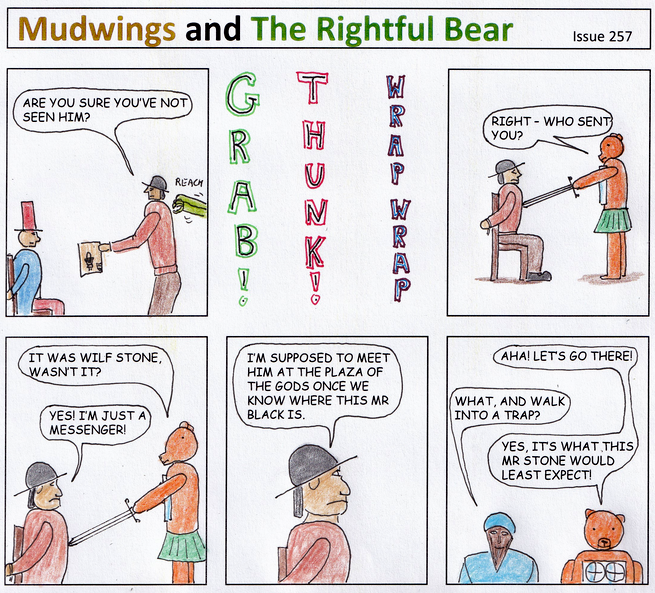 Mudwings and The Rightful Bear
Issue 257
ARE YOU SURE YOU'VE NOT
SEEN HIM?
REACH
GRAB!
THUNK!
WRAP WRAP
RIGHT - WHO SENT
YOU?
IT WAS WILF STONE,
WASN'T IT?
YES! I'M JUST A
MESSENGER!
I'M SUPPOSED TO MEET
HIM AT THE PLAZA OF
THE GODS ONCE WE
KNOW WHERE THIS MR
BLACK IS.
AHA! LET'S GO THERE!
WHAT, AND WALK
INTO A TRAP?
YES, IT'S WHAT THIS
MR STONE WOULD
LEAST EXPECT!